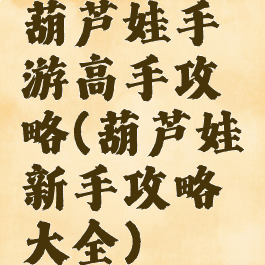 葫芦娃手
游高手攻
略(葫芦娃
新手攻略
大全)